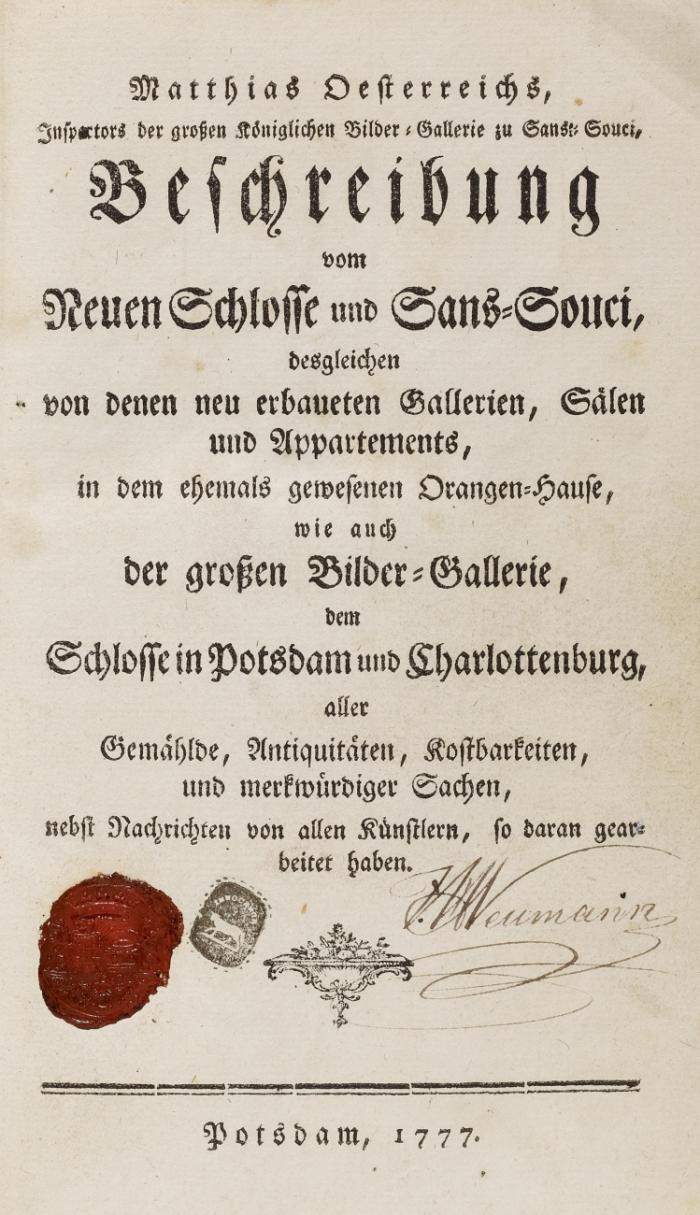 Matthias Oesterreichs,
Inspectors der großen Königlichen Bilder-Gallerie zu Sans-Souci,
Beschreibung
vom
Neuen Schlosse und Sans-Souci,
desgleichen
von denen neu erbaueten Gallerien, Sälen
und Appartements,
in dem ehemals gewesenen Orangen-Hause,
wie auch
der großen Bilder-Gallerie,
dem
Schlosse in Potsdam und Charlottenburg,
aller
Gemählde, Antiquitäten, Kostbarkeiten,
und merkwürdiger Sachen,
nebst Nachrichten von allen Künstlern, so daran gear-
beitet haben.
Neumann
Potsdam, 1777.